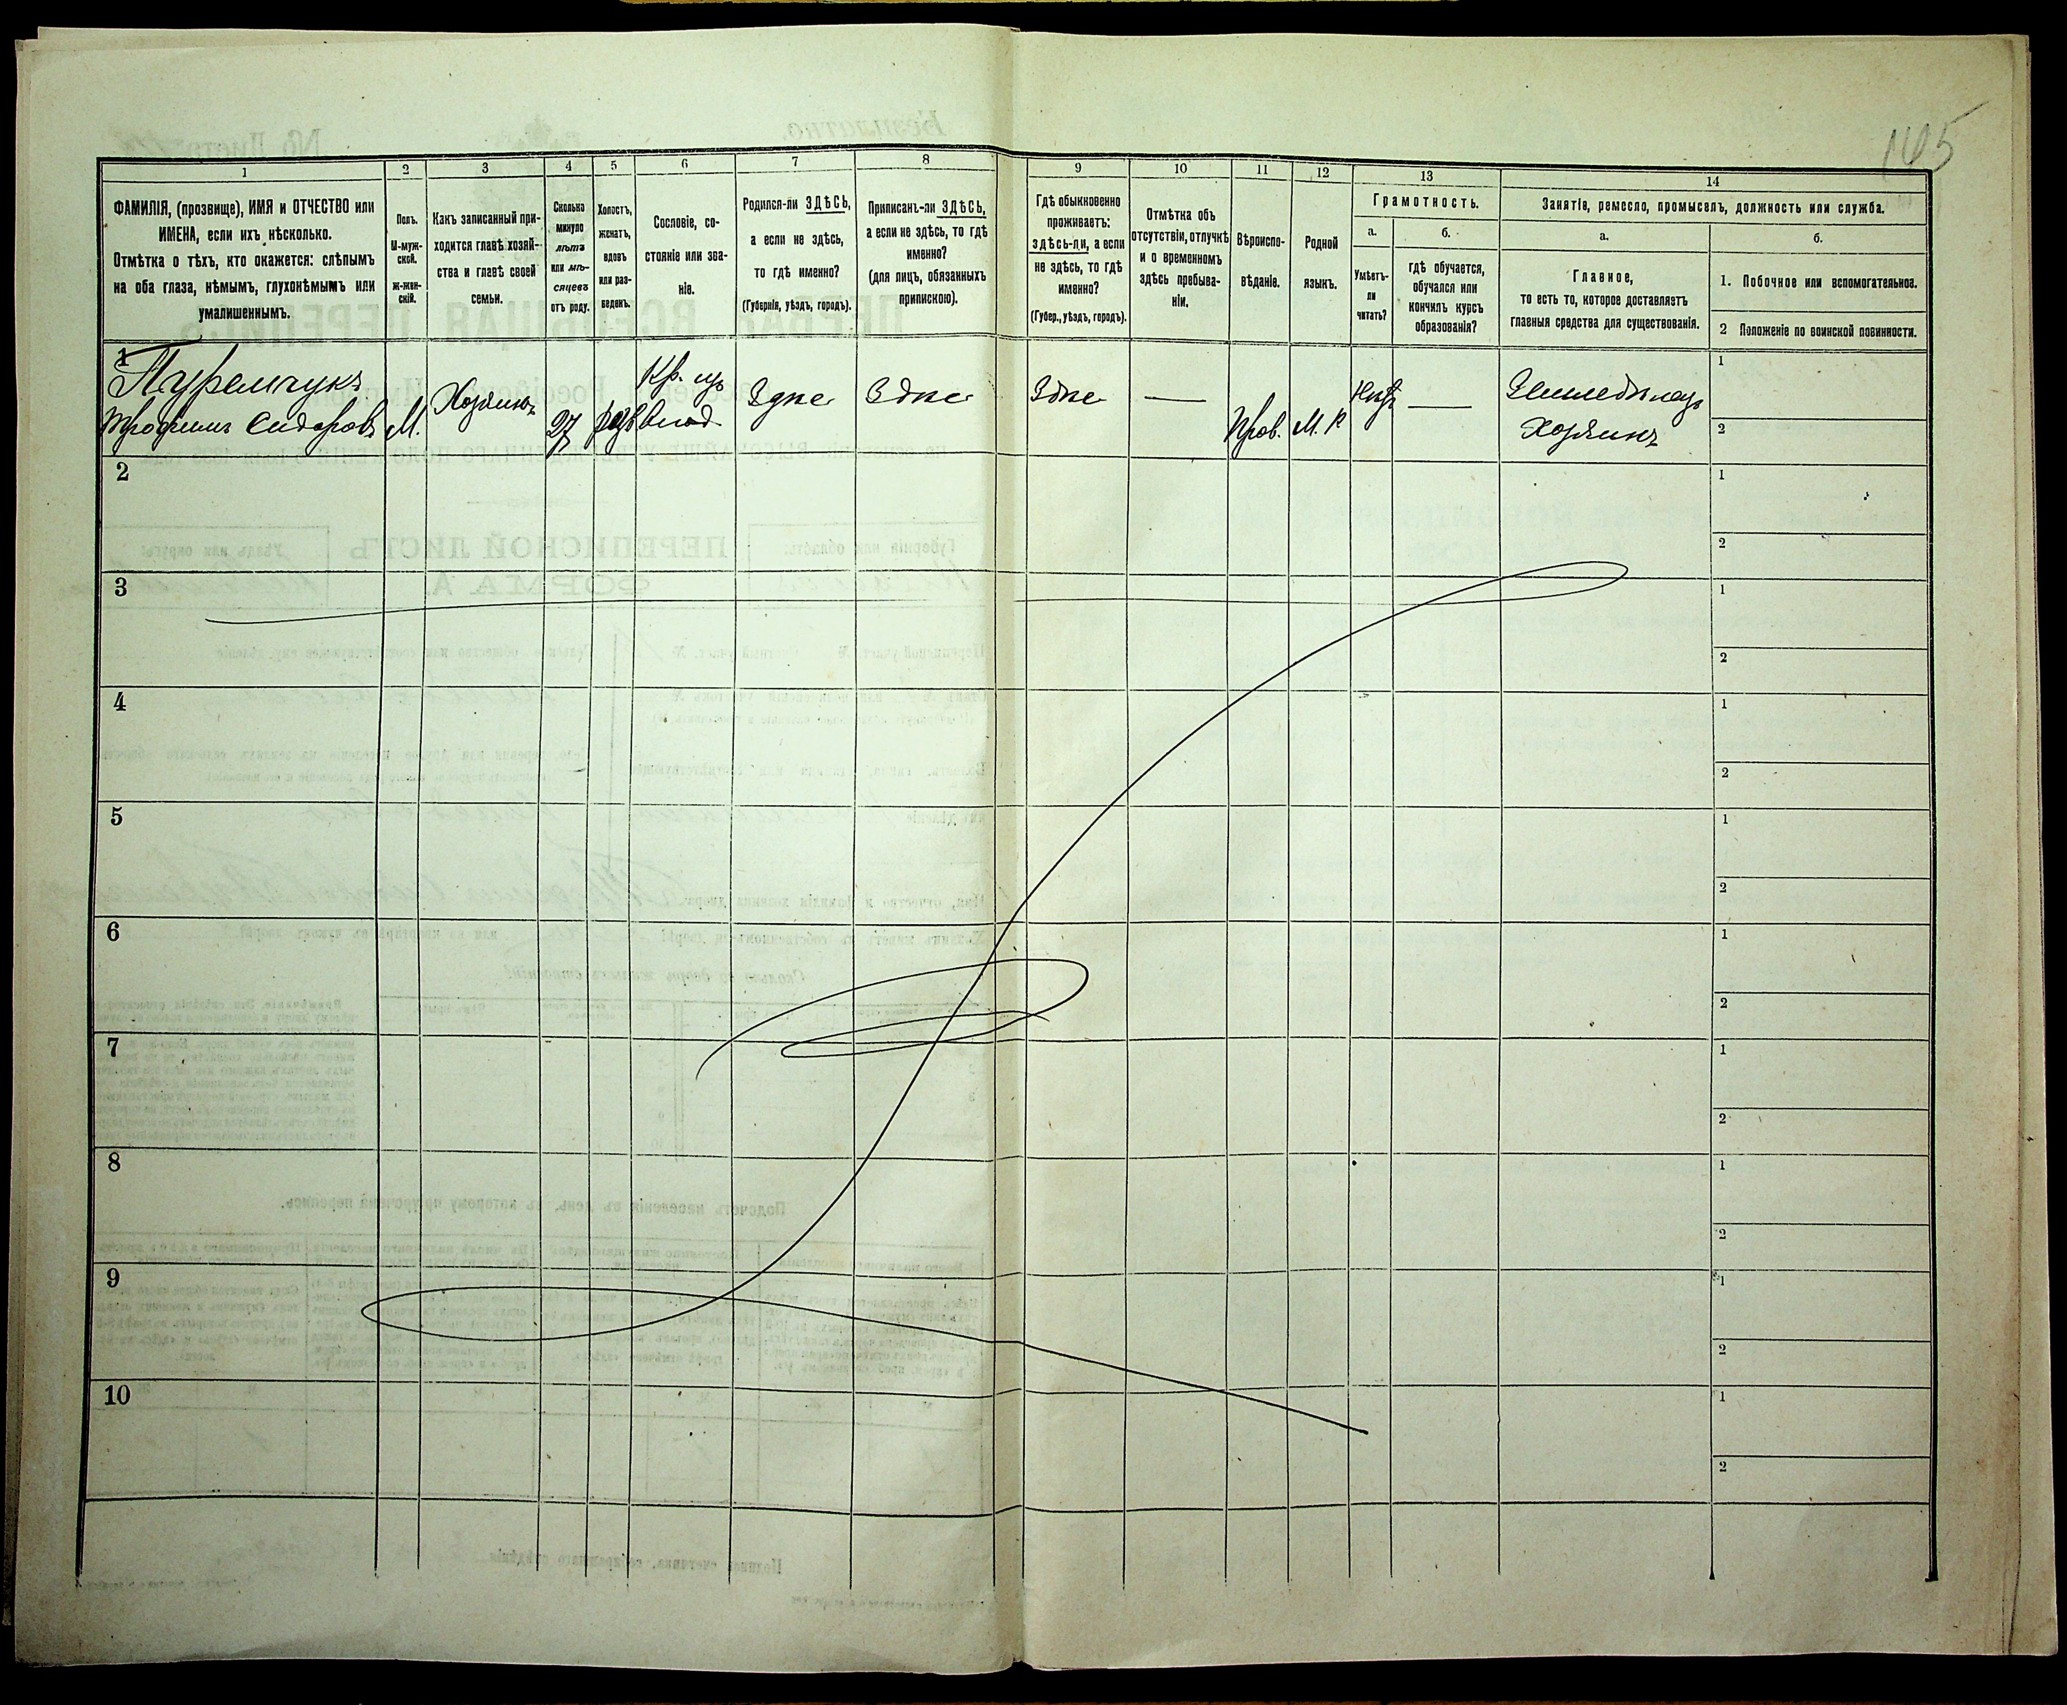 145
1
2
3
4
5
6
7
8
9
10
11
12
13
14
ФАМИЛІЯ, (прозвище), ИМЯ и ОТЧЕСТВО или
ИМЕНА, если ихъ нѣсколько.
Отмѣтка о тѣхъ, кто окажется: слѣпымъ
на оба глаза, нѣмымъ, глухонѣмымъ или
умалишеннымъ.
Полъ.
М-муж-
ской.
Ж-жен-
скій.
Какъ записанный при-
ходится главѣ хозяй-
ства и главѣ своей
семьи.
Сколько
минуло
лѣтъ
или мѣ-
сяцевъ
отъ роду.
Холостъ,
женатъ,
вдовъ
или раз-
веденъ.
Сословіе, со-
стояніе или зва-
ніе.
Родился-ли ЗДѢСЬ,
а если не здѣсь,
то гдѣ именно?
(Губернія, уѣздъ, городъ).
Приписанъ-ли ЗДѢСЬ,
а если не здѣсь, то гдѣ
именно?
(для лицъ, обязанныхъ
припискою).
Гдѣ обыкновенно
проживаетъ:
здѣсь-ли, а если
не здѣсь, то гдѣ
именно?
(Губер., уѣздъ, городъ).
Отмѣтка объ
отсутствіи, отлучкѣ
и о временномъ
здѣсь пребыва-
ніи.
Вѣроиспо-
вѣданіе.
Родной
языкъ.
Грамотность.
а.
Умѣетъ-
ли
читать?
б.
гдѣ обучается,
обучался или
кончилъ курсъ
образованія?
Занятіе, ремесло, промыселъ, должность или служба.
а.
Главное,
то есть то, которое доставляетъ
главныя средства для существованія.
б.
1. Побочное или вспомогательное.
2 Положеніе по воинской повинности.
1
Трофимъ Сидоровъ
М.
Хозяинъ
27
Кр. из
Здѣсь
Здѣсь
Здѣсь
—
Прав.
М. Р
—
Хозяинъ
1
2
2
1
2
3
1
2
4
1
2
5
1
2
6
1
2
7
1
2
8
1
2
9
1
2
10
1
2